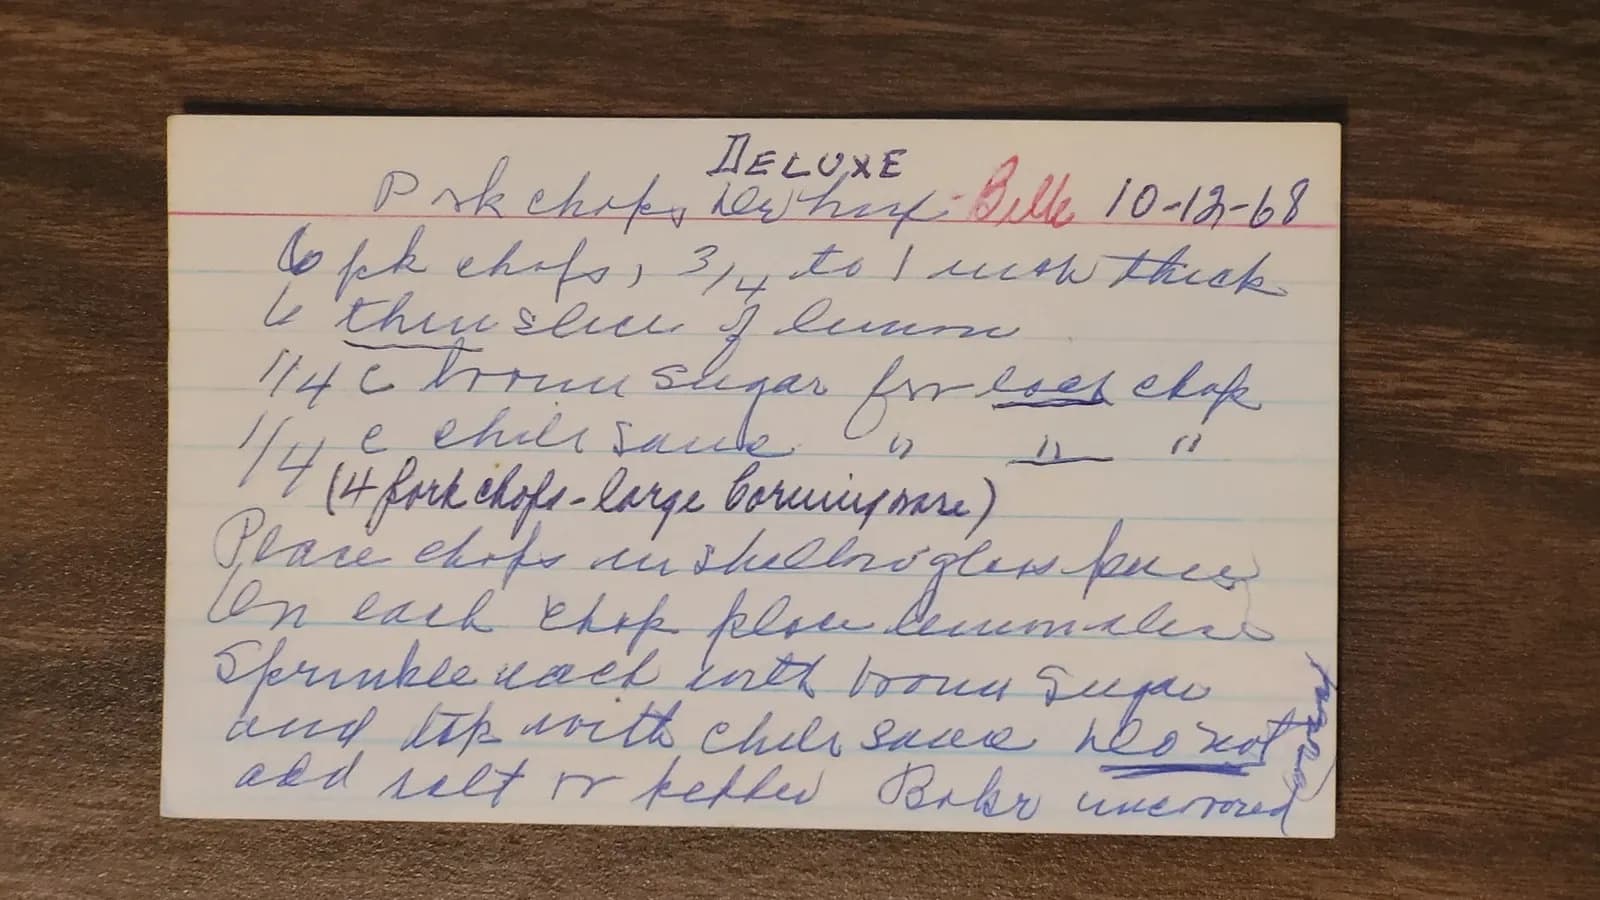 DELUXE
Pork chops Deluxe - Bill 10-12-68
6 pk chops, 3/4 to 1 inch thick
6 thin slices of lemon
1/4 c brown sugar for each chop
1/4 c chili sauce " " "
(4 pork chops - large Corningware)
Place chops in shallow glass pan
On each chop place lemon slice
Sprinkle each with brown sugar
and top with chili sauce Do not
add salt or pepper Bake uncovered